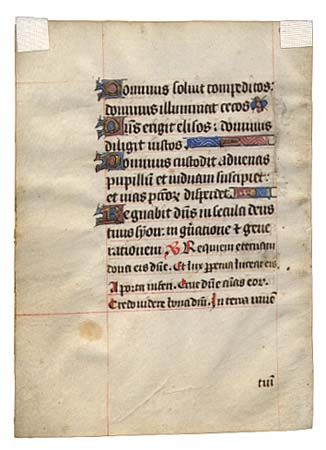 Dominus soluit compeditos:
dominus illuminat cecos
Dñs erigit elisos: dominus
diligit iustos.
Dominus custodit aduenas
pupillũ et uiduam suscipiet:
et uias pctõꝝ disperdet.
Regnabit dñs in secula deus
tuus syon: in gñatione et gene
rationem. Requiem eternam
dona eis dñe. Et lux perpetua luceat eis.
A porta inferi. Erue dñe aĩas eoꝝ.
Credo uidere bona dñi. In terra uiuẽ
tiũ